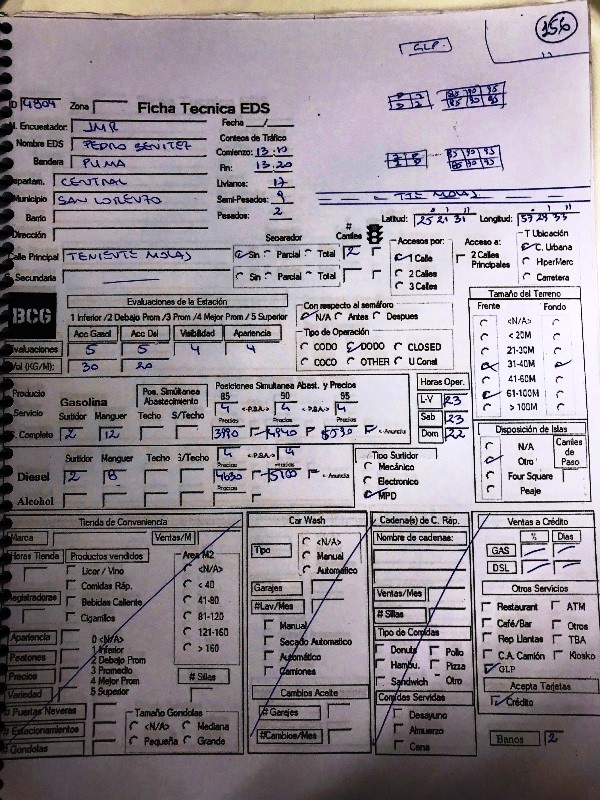 156
GLP.
ID 4804 Zona Ficha Tecnica EDS
N. Encuestador: JMR Fecha
Nombre EDS PEDRO BENITEZ Conteos de Tráfico
Bandera PUMA Comienzo: 13:10
Fin: 13.20
Departam. CENTRAL Livianos: 17
Municipio SAN LORENZO Semi-Pesados: 9
Barrio Pesados: 2
Dirección
TTE MOLAS
Latitud: 25 21 31 Longitud: 57 29 33
Calle Principal TENIENTE MOLAS
S. Secundaria
Separador # Carriles
Sin Parcial Total 2
Sin Parcial Total
Accesos por:
1 Calle
2 Calles
3 Calles
Acceso a:
2 Calles Principales
T Ubicación
C. Urbana
HiperMerc
Carretera
BCG
Evaluaciones de la Estación
1 Inferior /2 Debajo Prom /3 Prom /4 Mejor Prom /5 Superior
Acc Gasol Acc Dsl Visibilidad Apariencia
Evaluaciones 5 5 4 4
Vol (KG/M): 30 20
Con respecto al semáforo
N/A Antes Despues
Tipo de Operación
CODO DODO CLOSED
COCO OTHER U Conal
Tamaño del Terreno
Frente Fondo
<N/A>
< 20M
21-30M
31-40M
41-60M
61-100M
> 100M
Producto Servicio
Gasolina
Pos. Simultanea Abastecimiento
Posiciones Simultanea Abast. y Precios
85 90 95
4 <-P.S.A.-> 4 4
Surtidor Manguer Techo S/Techo Precios Precios Precios
S. Completo 2 12 <-Anuncia
Surtidor Manguer Techo S/Techo
4 <-P.S.A.-> 4
Precios Precios
Diesel 2 8 4630 5100 <-Anuncia
Alcohol
Horas Oper.
L-V 23
Sab 23
Dom 22
Tipo Surtidor
Mecánico
Electronico
MPD
Disposición de Islas
N/A
Otro
Four Square
Peaje
Carriles de Paso
Tienda de Conveniencia
Marca Ventas/M
Horas Tienda Productos vendidos
Licor / Vino
Comidas Ráp.
Registradoras Bebidas Caliente
Cigarrilos
Area M2
<N/A>
< 40
41-80
81-120
121-160
> 160
Apariencia 0 <N/A>
1 Inferior
Peatones 2 Debajo Prom
Precios 3 Promedio
4 Mejor Prom
Variedad 5 Superior
# Sillas
# Puertas Neveras
# Estacionamientos
# Gondolas
Tamaño Gondolas
Mediana
Pequeña Grande
Car Wash
Tipo
<N/A>
Manual
Automático
Garajes
#Lav/Mes
Manual
Secado Automatico
Automático
Camiones
Cambios Aceite
# Garajes
#Cambios/Mes
Cadena(s) de C. Ráp.
Nombre de cadenas:
Ventas/Mes
# Sillas
Tipo de Comidas
Donuts Pollo
Hambu. Pizza
Sandwich Otro
Comidas Servidas
Desayuno
Almuerzo
Cena
Ventas a Crédito
% Dias
GAS
DSL
Otros Servicios
Restaurant ATM
Café/Bar Otros
Rep Llantas TBA
C.A. Camión Kiosko
GLP
Acepta Tarjetas
Crédito
Banos 2